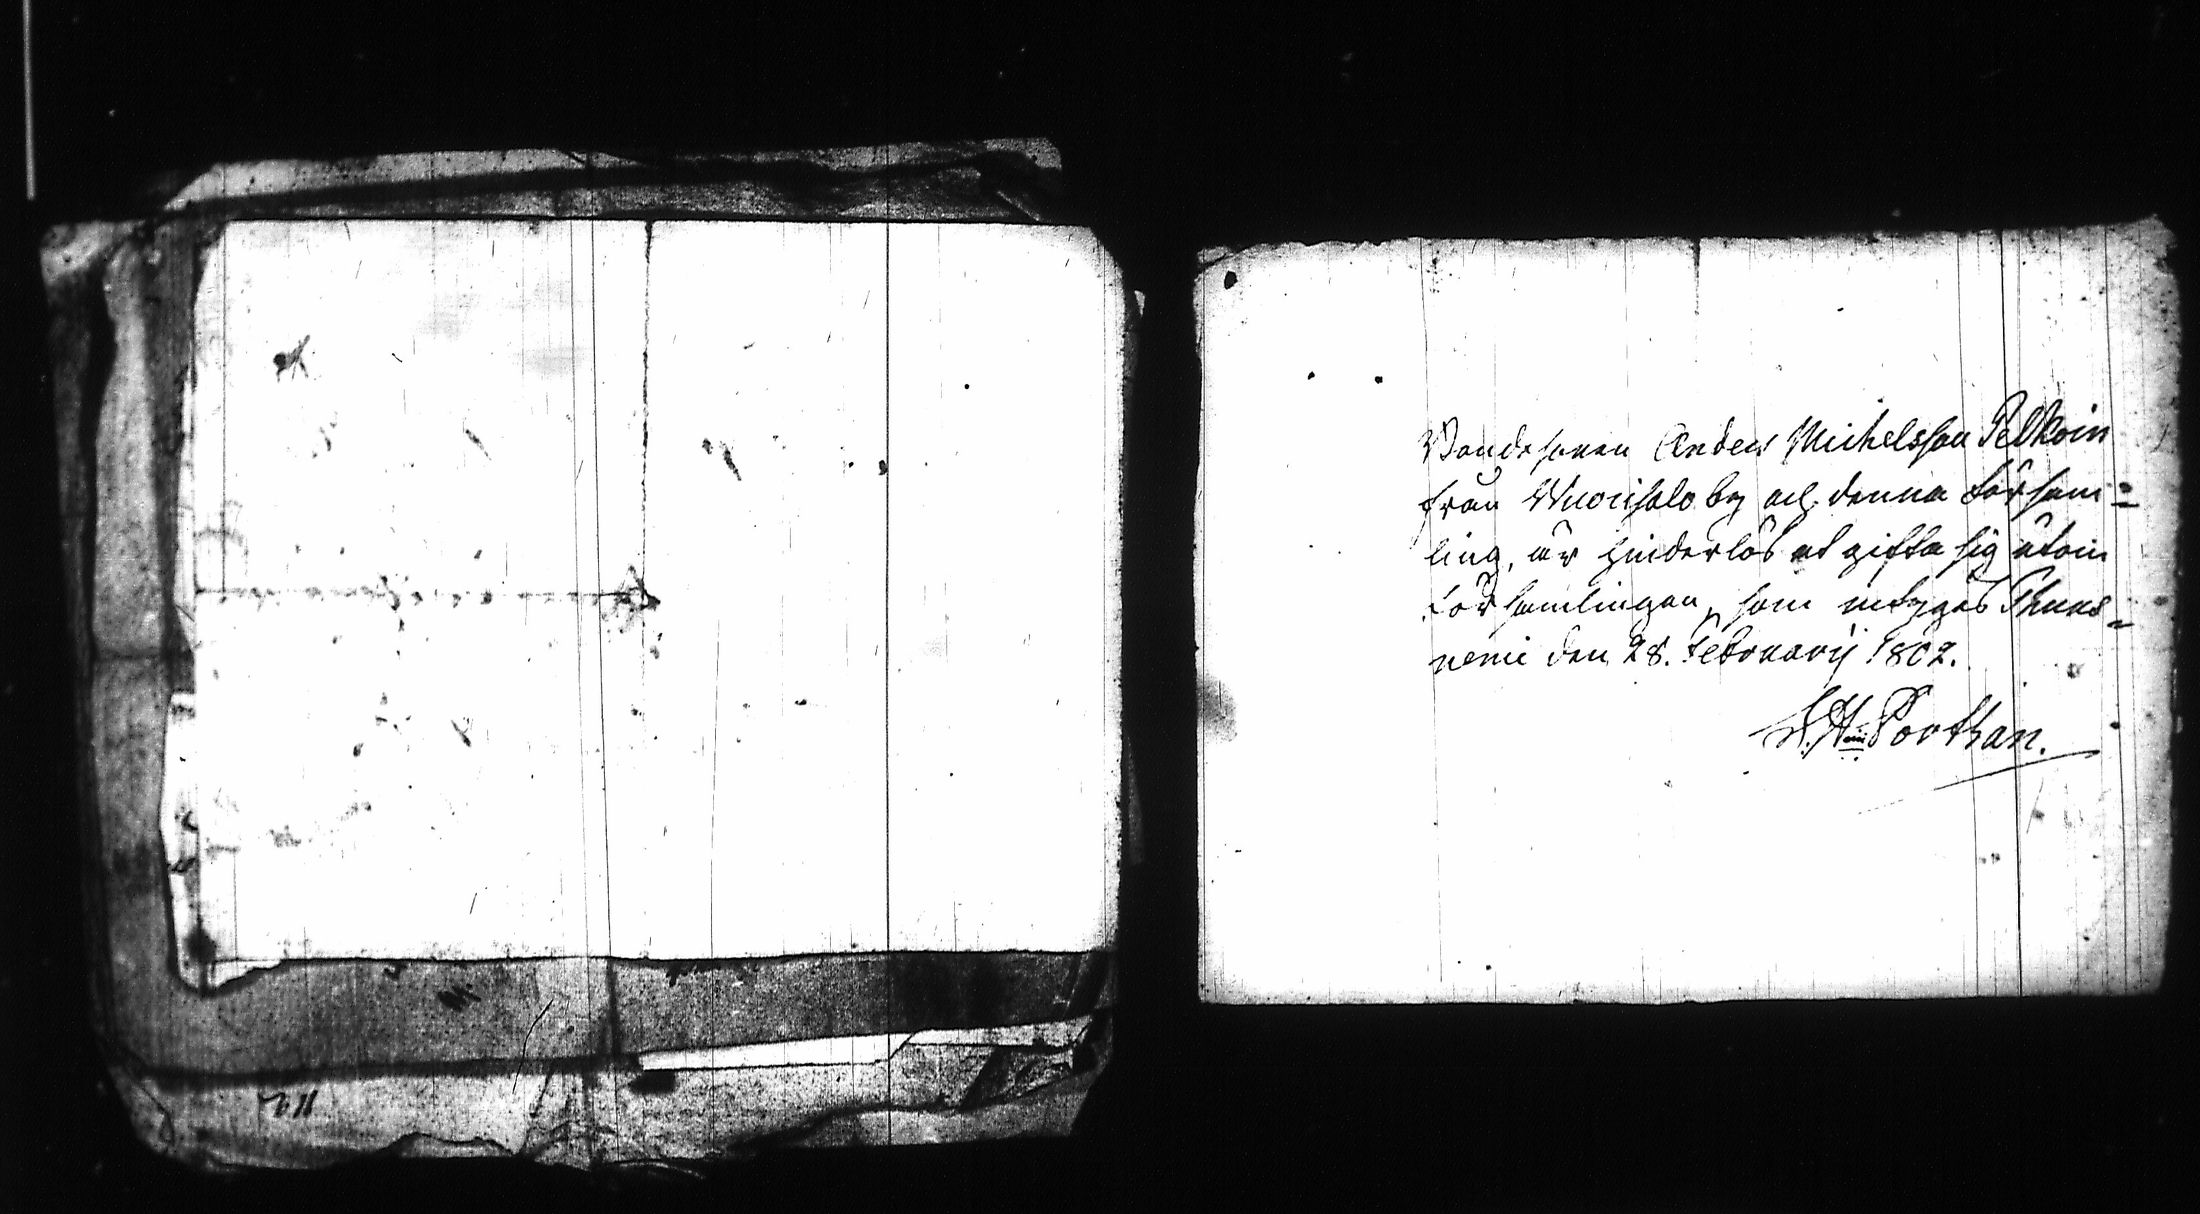 Bondesonen Anders Michelsson Pelkoin
från Wuorisalo by och denna försam=
ling, är hinderlös at gifta sig utom
församlingen, som intygas Thuus=
niemi den 28. Februarii 1802.
Porthan.